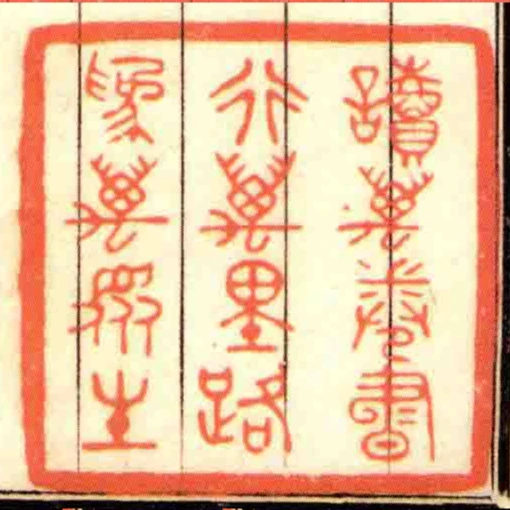 讀萬卷書
行萬里路
爲萬眾生